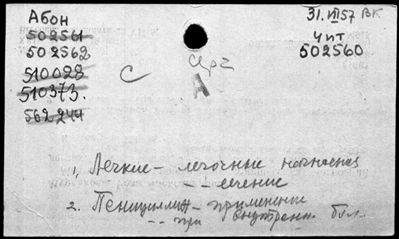 Абон
31.VII 57 ВК
502561
Чит
502562
502560
510028
С
Арг
510373.
А
562244
1, Легкие - легочные нагноения
- - лечение
2. Пенициллин - применение
- - при внутрен. бол.